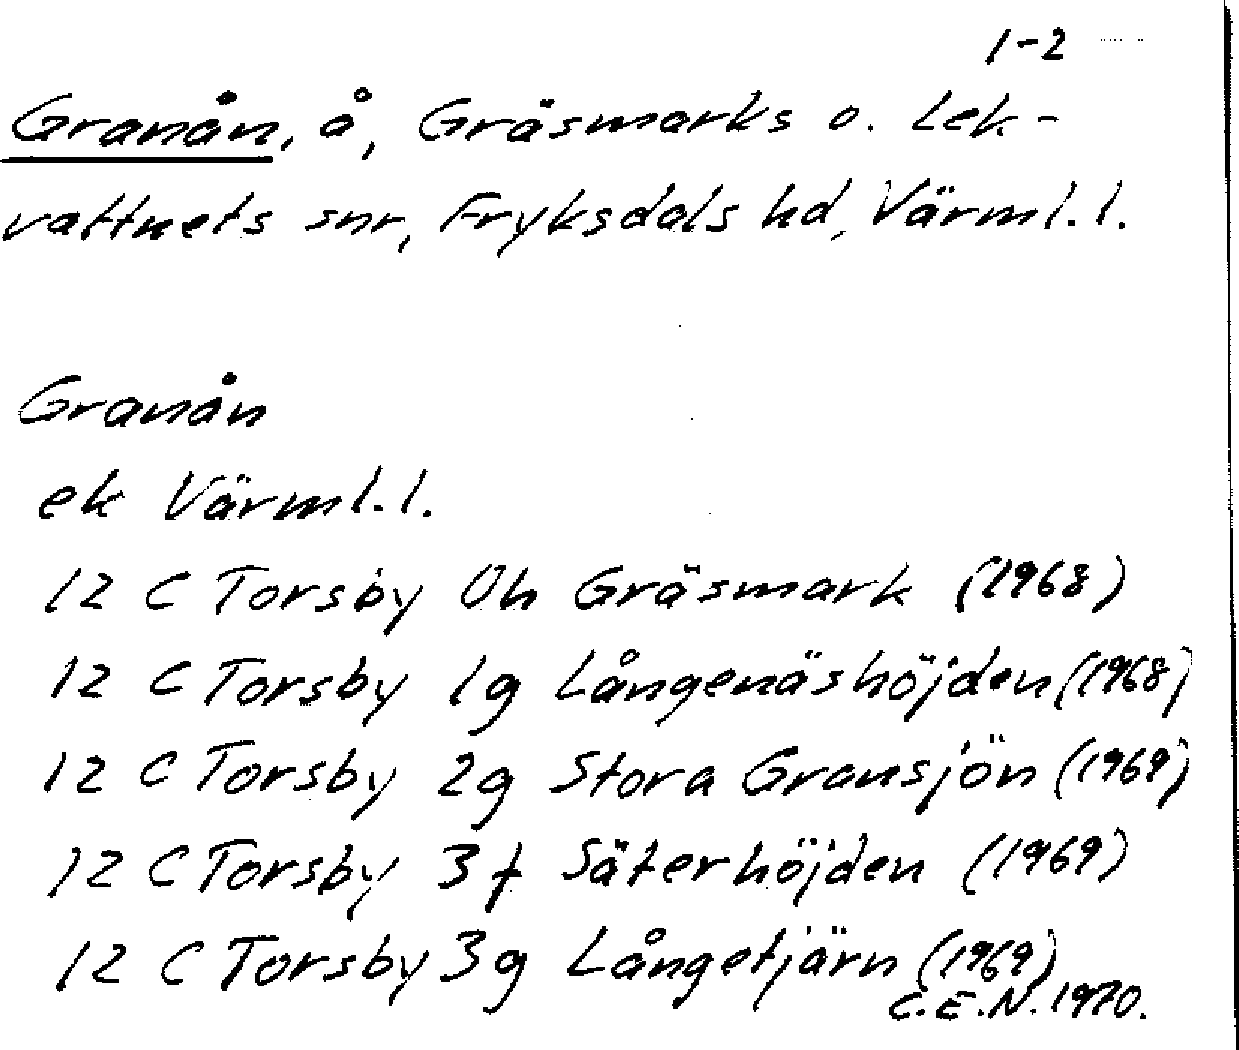 1-2
Granån, å, Gräsmarks o. Lek-
vattnets snr, Fryksdals hd, Värml. l.
Granån
ek Värml. l.
12 C Torsby 0h Gräsmark (1968)
12 C Torsby 1g Långenäshöjden (1968)
12 C Torsby 2g Stora Gransjön (1969)
12 C Torsby 3f Säterhöjden (1969)
12 C Torsby 3g Långetjärn (1969)
C.E.N. 1970.